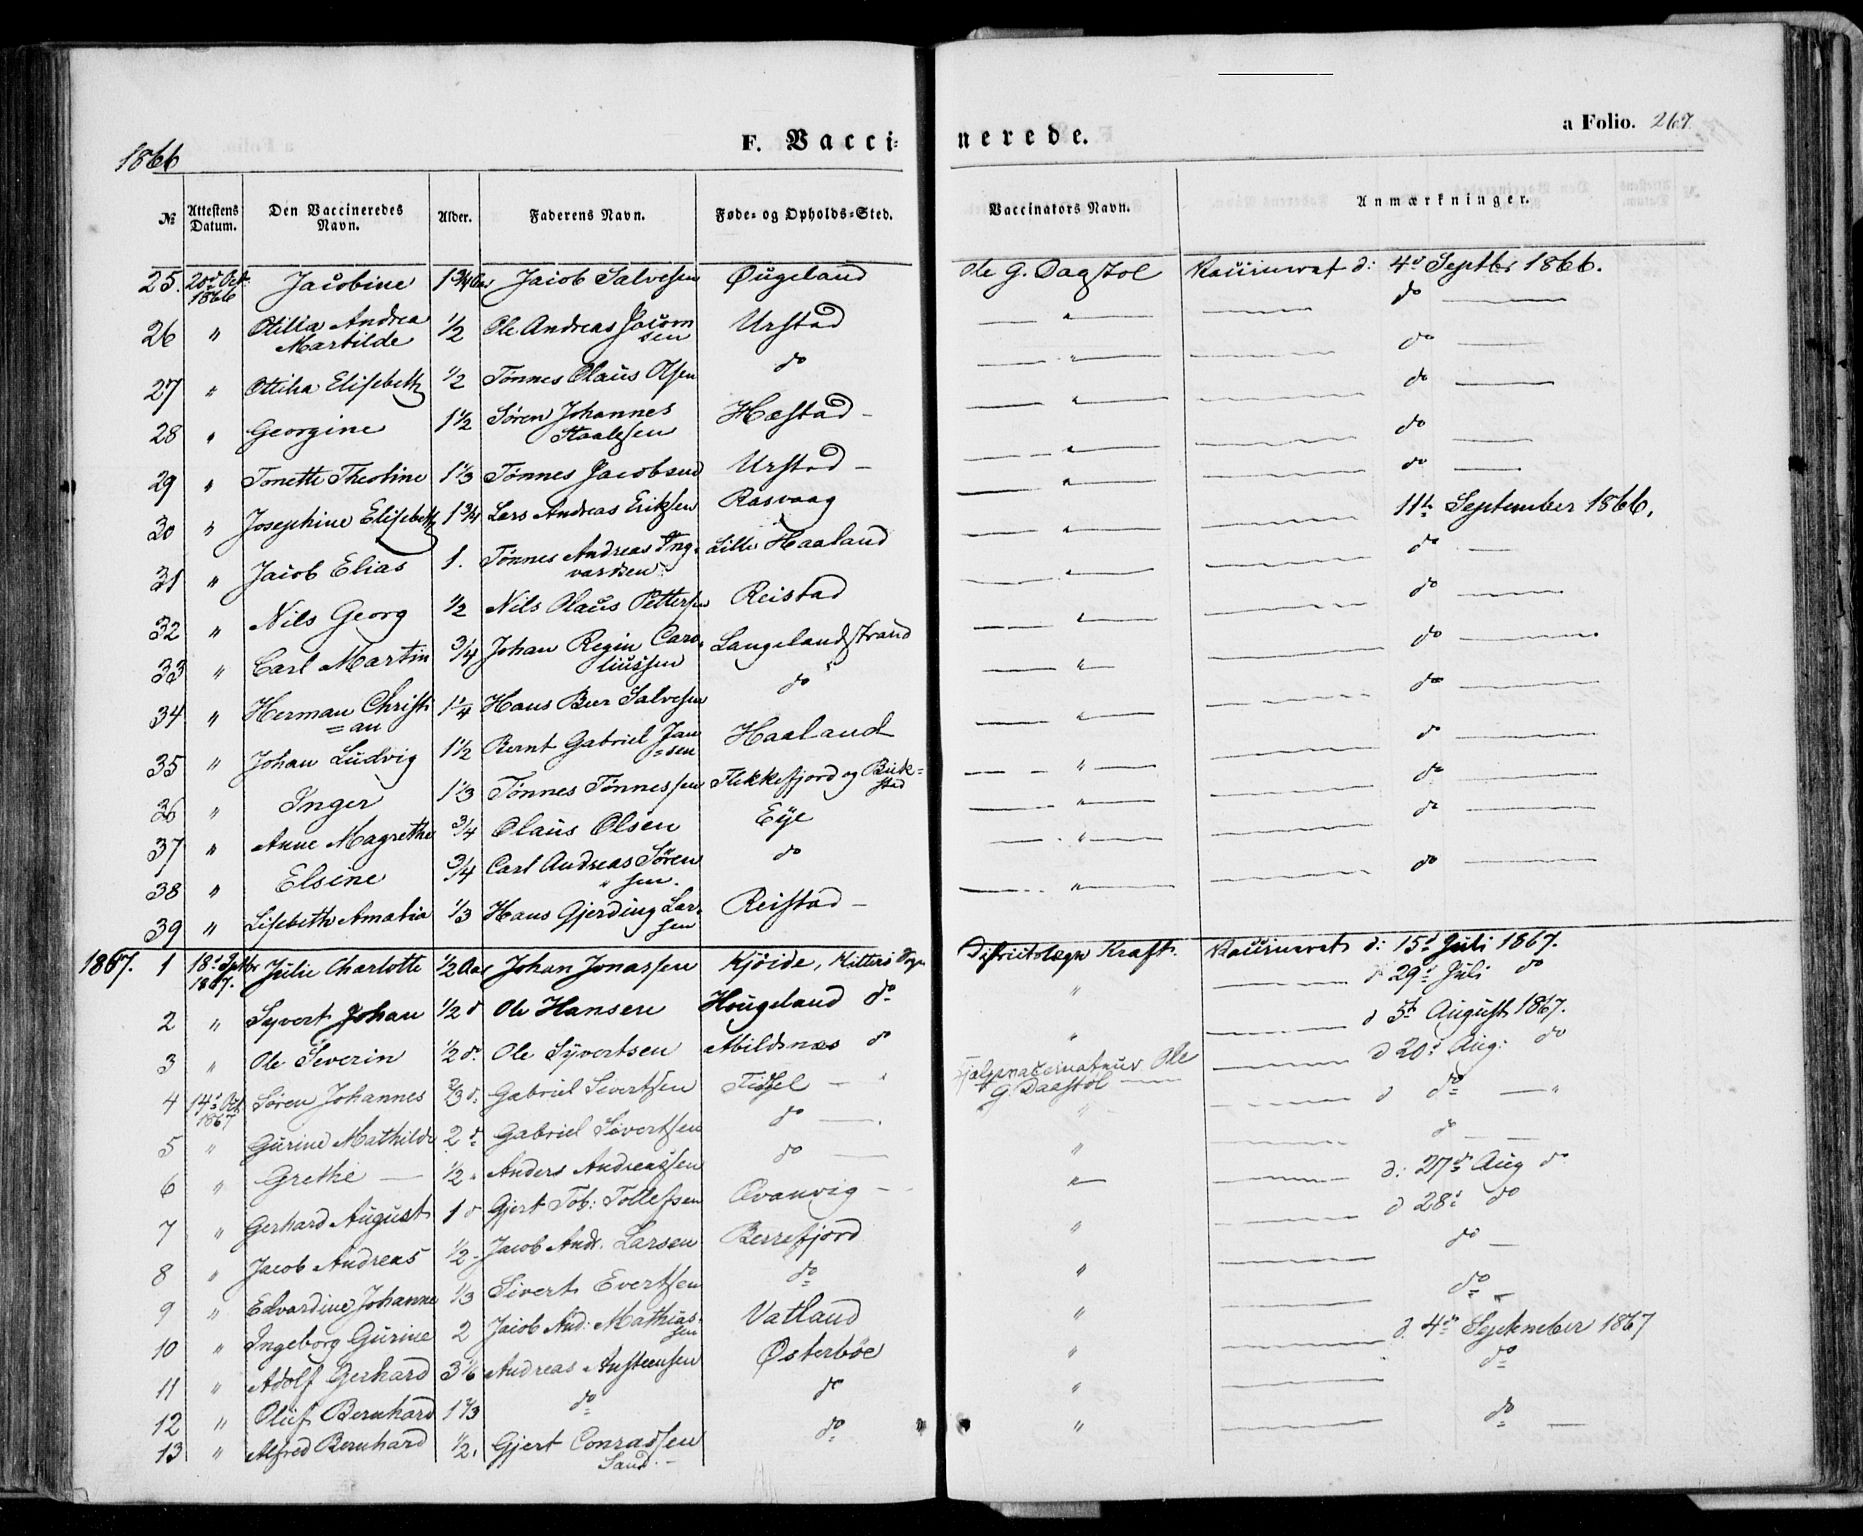 1866
F. Vacci-
nerede.
a Folio. 267.
№ | Attestens Datum. | Den Vaccineredes Navn. | Alder. | Faderens Navn. | Føde- og Opholds-Sted. | Vaccinators Navn. | Anmærkninger.
25. | 20d Oct. 1866 | Jacobine | 1 3/4 Aar | Jacob Salvesen | Øugeland | Ole G. Dagstol | Vaccineret d: 4d Septbr 1866.
26 | " | Otilia Andrea Martilde | 1/2 | Ole Andreas Jacobsen | Urstad | — " — | — do —
27 | " | Ottilia Elisebeth | 1/2 | Tønnes Olaus Olsen | do | — " — | — do —
28 | " | Georgine | 1 1/2 | Søren Johannes Staalesen | Hæstad – | — " — | — do —
29 | " | Tonette Theoline | 1 1/3 | Tønnes Jacobsen | Urstad – | — " — | — do —
30 | " | Josephine Elisebeth | 1 3/4 | Lars Andreas Eriksen | Rasvaag | — " — | — do —
31 | " | Jacob Elias | 1. | Tønnes Andreas Ingvardsen | Lille Haaland | — " — | — 11te September 1866.
32 | " | Nils Georg | 1/2 | Nils Olaus Pettersen | Reistad | — " — | — do —
33 | " | Carl Martin | 3/4 | Johan Regin Caroliussen | Langelandstrand | — " — | — do —
34 | " | Herman Christian | 1 1/4 | Hans Beer Salvesen | do | — " — | — do —
35 | " | Johan Ludvig | 1 1/2 | Bernt Gabriel Jansen | Haaland | — " — | — do —
36 | " | Inger | 1 1/3 | Tønnes Tønnessen | Flekkefjord og Birkestad | — " — | — do —
37 | " | Anne Magrethe | 3/4 | Olaus Olsen | Eye | — " — | — do —
38 | " | Elsine | 3/4 | Carl Andreas Sørensen. | do | — " — | — do —
39 | " | Lisebeth Amalia | 1/3 | Hans Gjerding Larsen | Reistad – | — " — | — do —
1867. 1 | 18d Septbr 1867. | Julie Charlotte | 1/2 Aar | Johan Jonassen | Kjöide, Hitterø Sogn | Districtslæge Kraft. | Vaccineret d: 15d Juli 1867.
2 | " | Syvert Johan | 1/2 d | Ole Hansen | Hougeland do | " | — d 29d Juli do
3 | " | Ole Severin | 1/2 do. | Ole Syvertsen | Abildsnæs do | " | — d 5te August 1867.
4 | 14d Oct 1867 | Søren Johannes | 2/3 d. | Gabriel Sivertsen | Tidsel — " | Hjælpevaccinateur Ole G. Daastøl — | — d 20d Aug: do
5 | " | Gurine Mathilde | 2 d | Gabriel Sivertsen | do — | " | — d do — "
6 | " | Grethe — | 1/2 " | Anders Andreassen | do — | " | — do —
7 | " | Gerhard August | 1 d | Gjert Tob: Tollefsen | Qvanvig – | " | — d: 27d Aug do
8 | " | Jacob Andreas | 1/2 - | Jacob Andr. Larsen | Berrefjord | " | — d 28d do
9 | " | Edvardine Johanne | 1/3 | Sivert Evertsen | do | " | — do —
10 | " | Ingeborg Gurine | 2 | Jacob And: Mathiassen | Vatland | " | — do —
11 | " | Adolf Gerhard | 3 1/6 | Andreas Austeensen | Østerbøe | " | — d. 4de September 1867
12 | " | Oluf Bernhard | 1 1/3 | do | do | " | — do
13 | " | Alfred Bernhard | 1/2. | Gjert Conradsen Sand. – | do | " | — do —